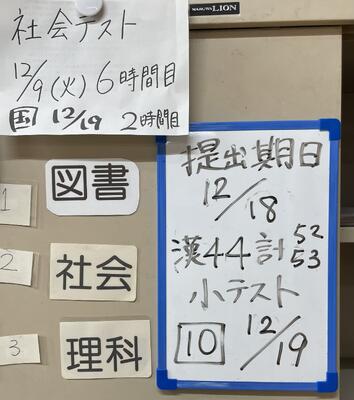 LION
社会テスト
12/9(火)6時間目
国 12/19 2時間目
1 図書
2 社会
3 理科
提出期日
12/18
漢44計52
53
小テスト
10 12/19